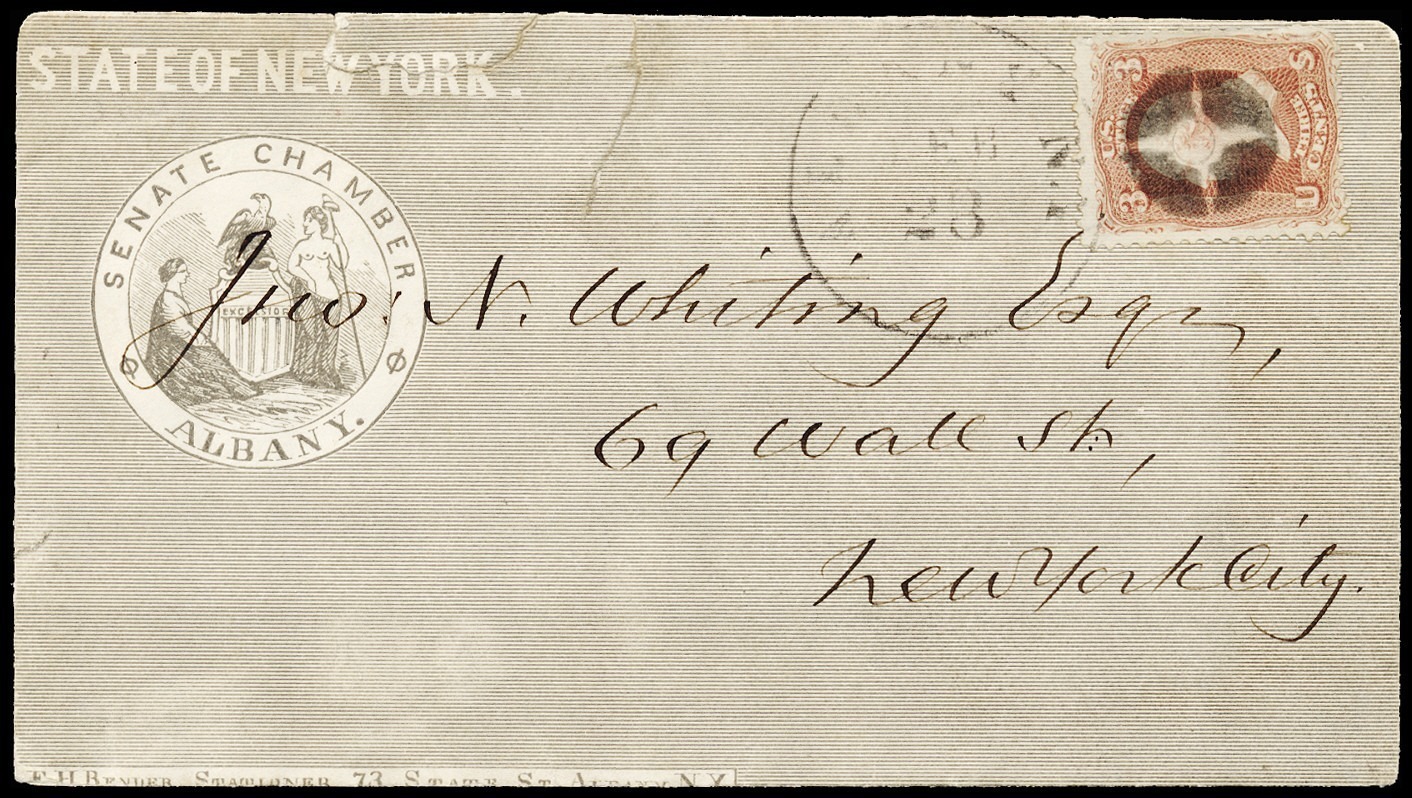 STATE OF NEW YORK.
SENATE CHAMBER
ALBANY.
EXCELSIOR
28
3 3
U.S.
Jno. N. Whiting Esqr,
69 Wall St,
New York City.
E. H. BENDER, STATIONER, 73, STATE ST. ALBANY, N.Y.